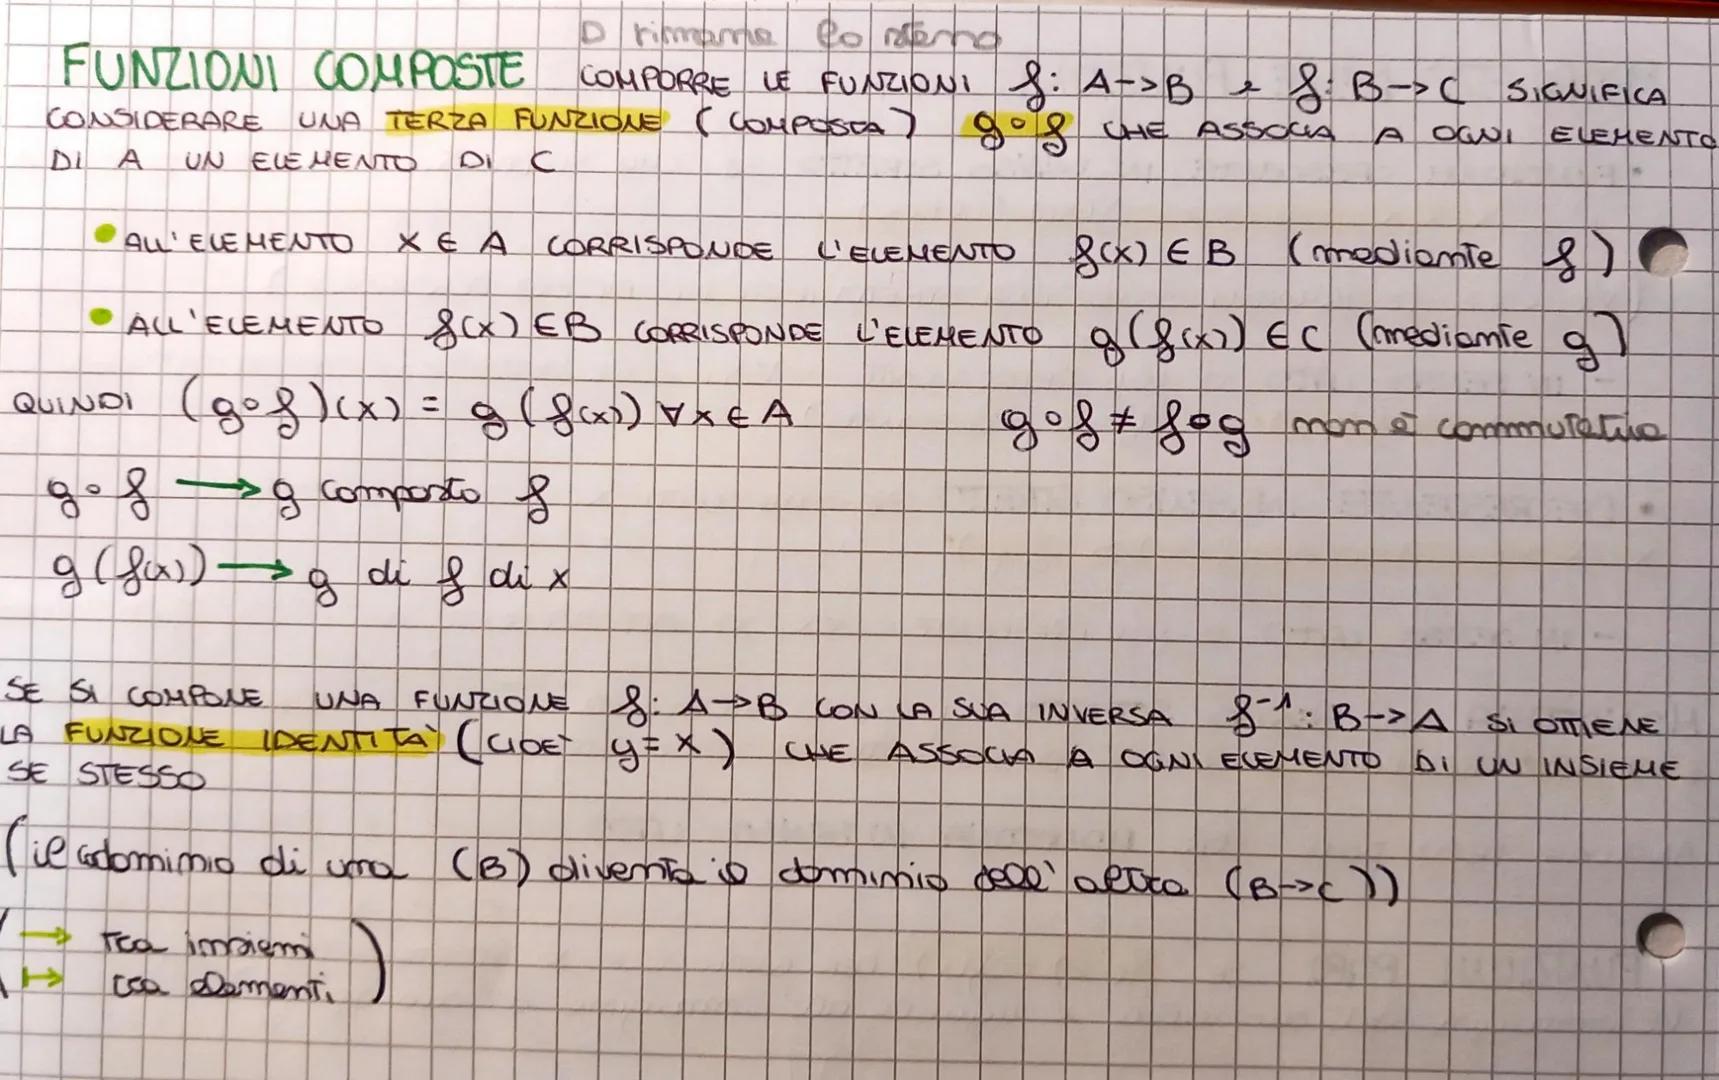 D rimane lo stesso
FUNZIONI COMPOSTE COMPORRE LE FUNZIONI f: A->B e f: B->C SIGNIFICA
CONSIDERARE UNA TERZA FUNZIONE (COMPOSTA) g∘f CHE ASSOCIA A OGNI ELEMENTO
DI A UN ELEMENTO DI C
• ALL'ELEMENTO X ∈ A CORRISPONDE L'ELEMENTO f(x) ∈ B (mediante f)
• ALL'ELEMENTO f(x) ∈ B CORRISPONDE L'ELEMENTO g(f(x)) ∈ C (mediante g)
QUINDI (g∘f)(x) = g(f(x)) ∀x ∈ A g∘f ≠ f∘g non è commutativa
g∘f → g composto f
g(f(x)) → g di f di x
SE SI COMPONE UNA FUNZIONE f: A->B CON LA SUA INVERSA f⁻¹: B->A SI OTTIENE
LA FUNZIONE IDENTITÀ (CIOÈ y = x) CHE ASSOCIA A OGNI ELEMENTO DI UN INSIEME
SE STESSO
(il codominio di una (B) diventa il dominio dell'altra (B->C))
(→ tra insiemi
↦ tra elementi)